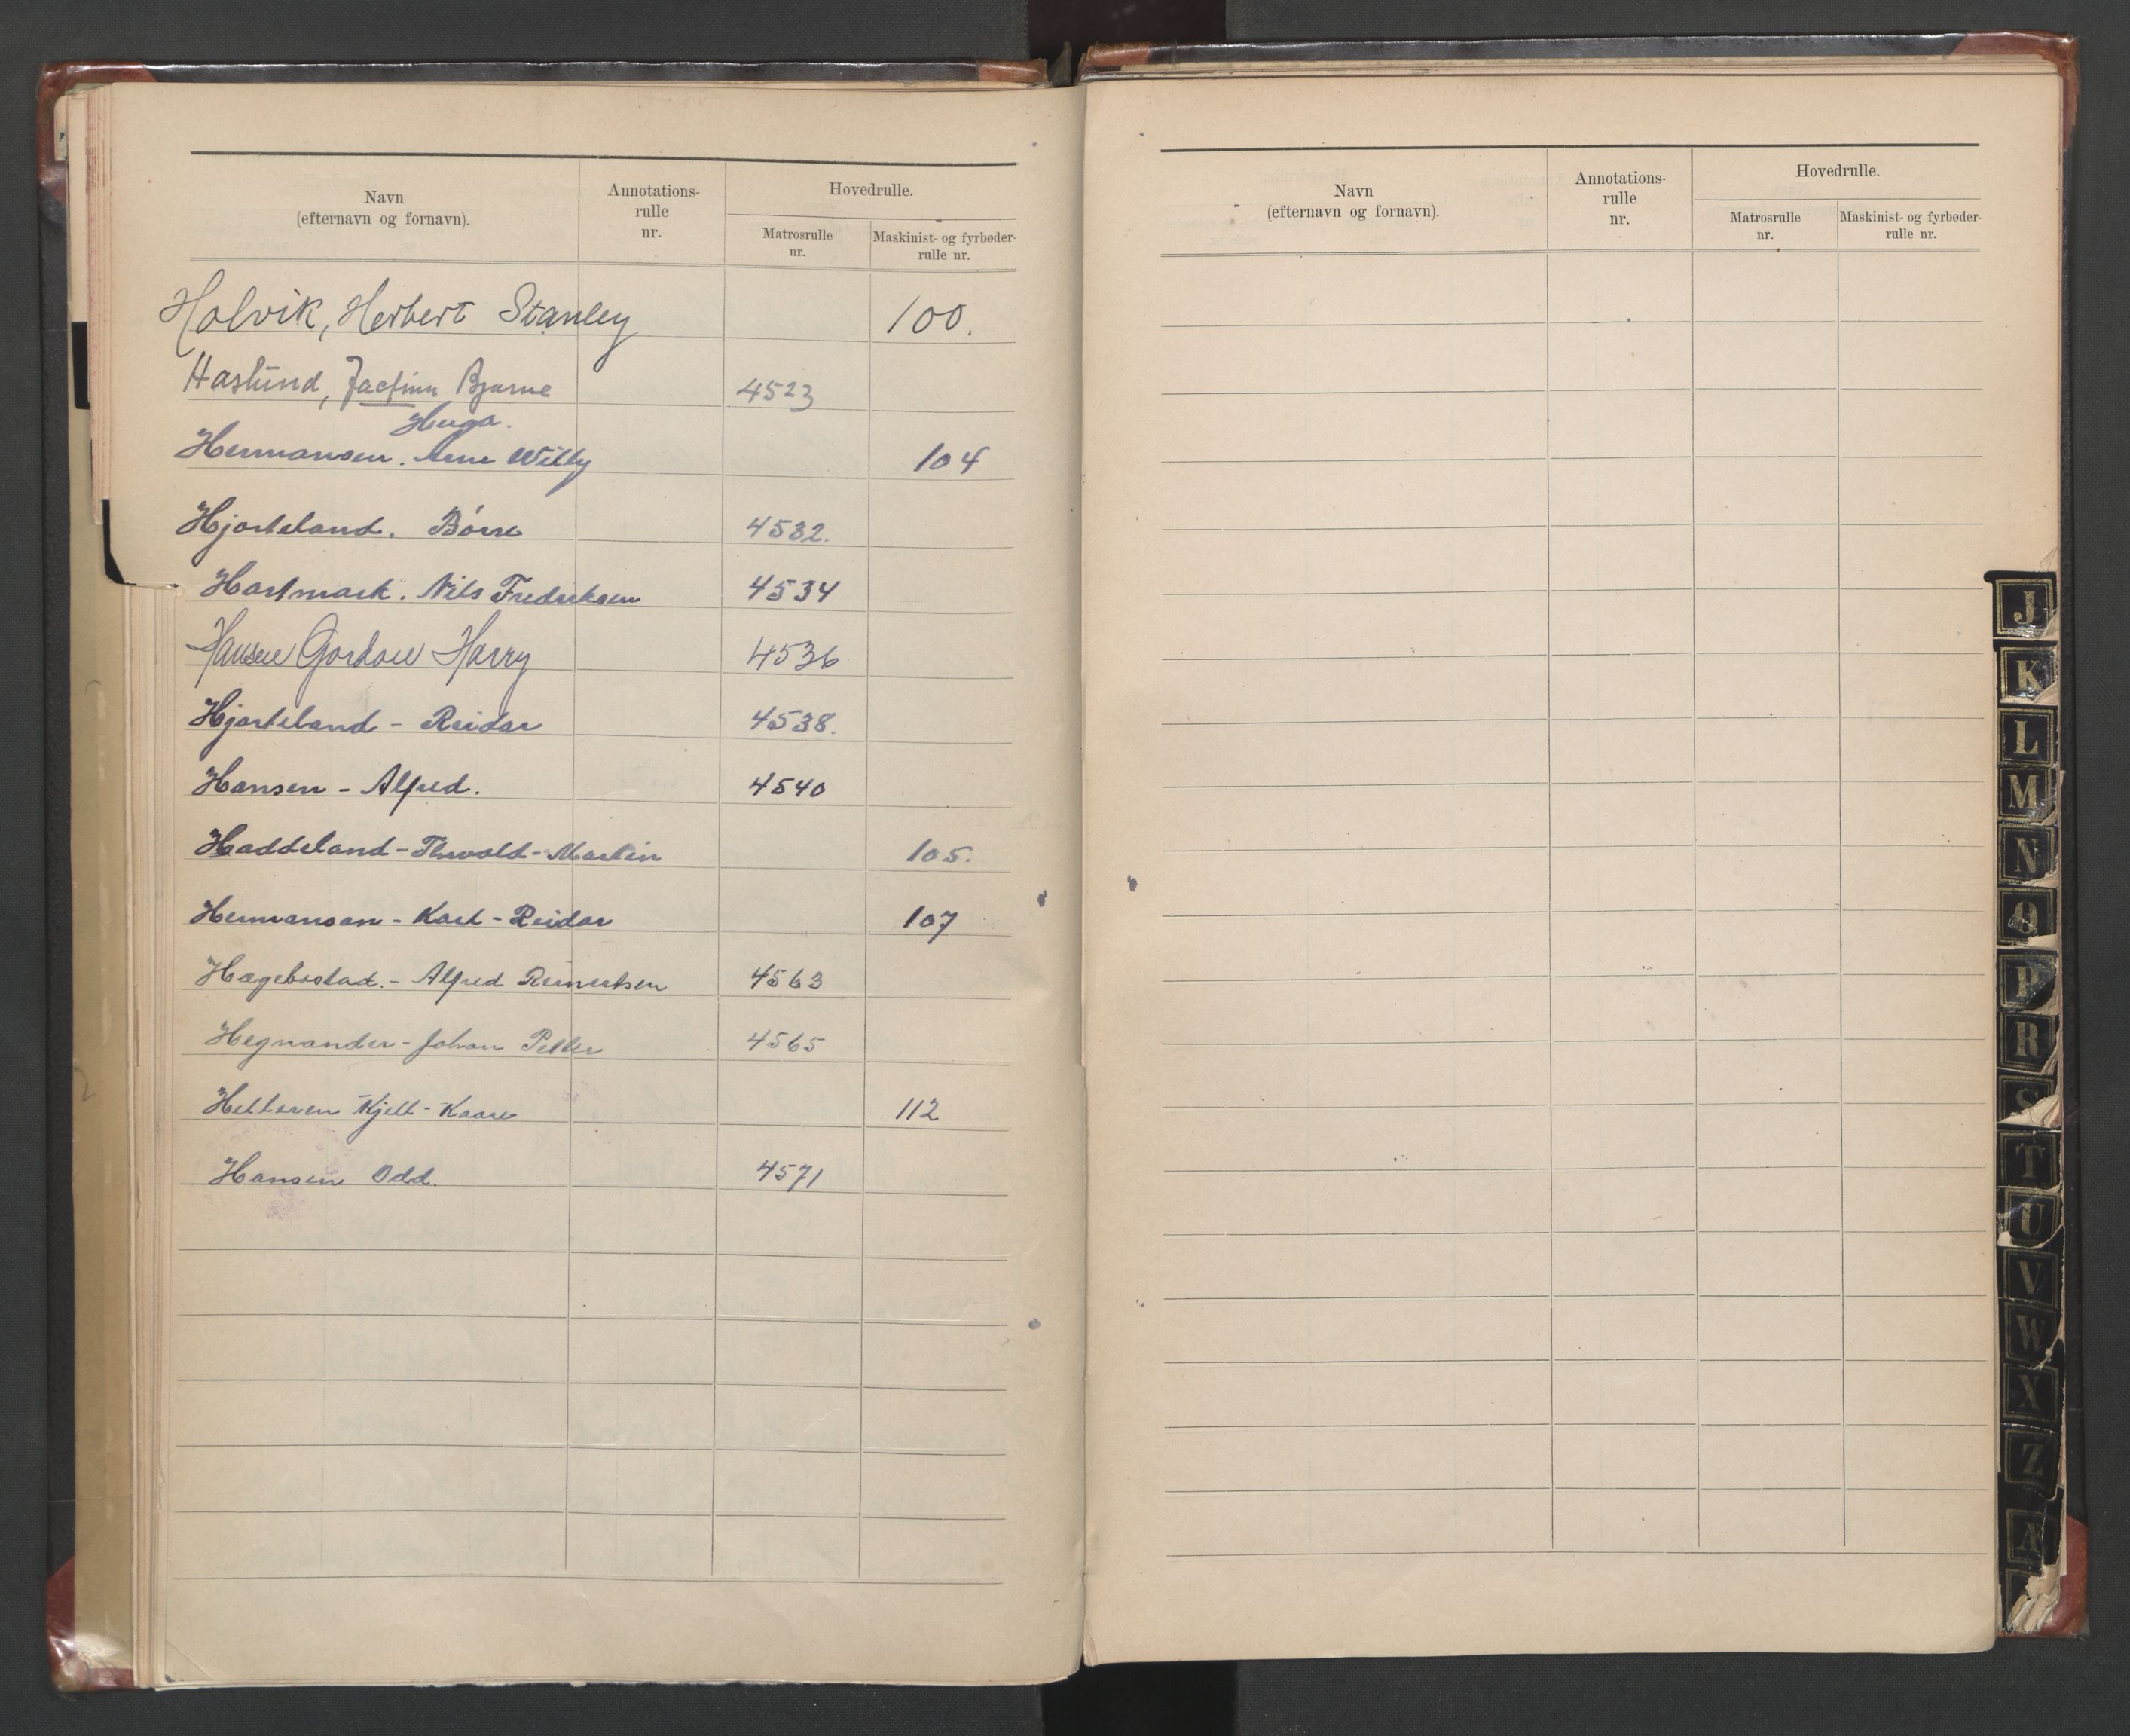 Navn
(efternavn og fornavn).
Annotations-
rulle
nr.
Hovedrulle.
Matrosrulle
nr.
Maskinist- og fyrbøder-
rulle nr.
Holvik, Herbert Stanley 100.
Haslund, Bjarne 4523
Hugo.
Hermansen. Arne Willy 104
Hjorteland. Børre 4532.
Hartmark. Nils Fredriksen 4534
Hansen Gordon Harry 4536
Hjorteland - Reidar 4538.
Hansen - Alfred. 4540
Haddeland - Thorvald - Martin 105.
Hermansen - Karl - Reidar 107
Hægebostad. - Alfred Reinertsen 4563
Hegnander - Johan Petter 4565
Helleren Kjell - Kaare 112
Hansen Odd. 4571
Navn
(efternavn og fornavn).
Annotations-
rulle
nr.
Hovedrulle.
Matrosrulle
nr.
Maskinist- og fyrbøder-
rulle nr.
J
K
L
M
N
O
P
R
S
T
U
V
W
X
Z
Æ